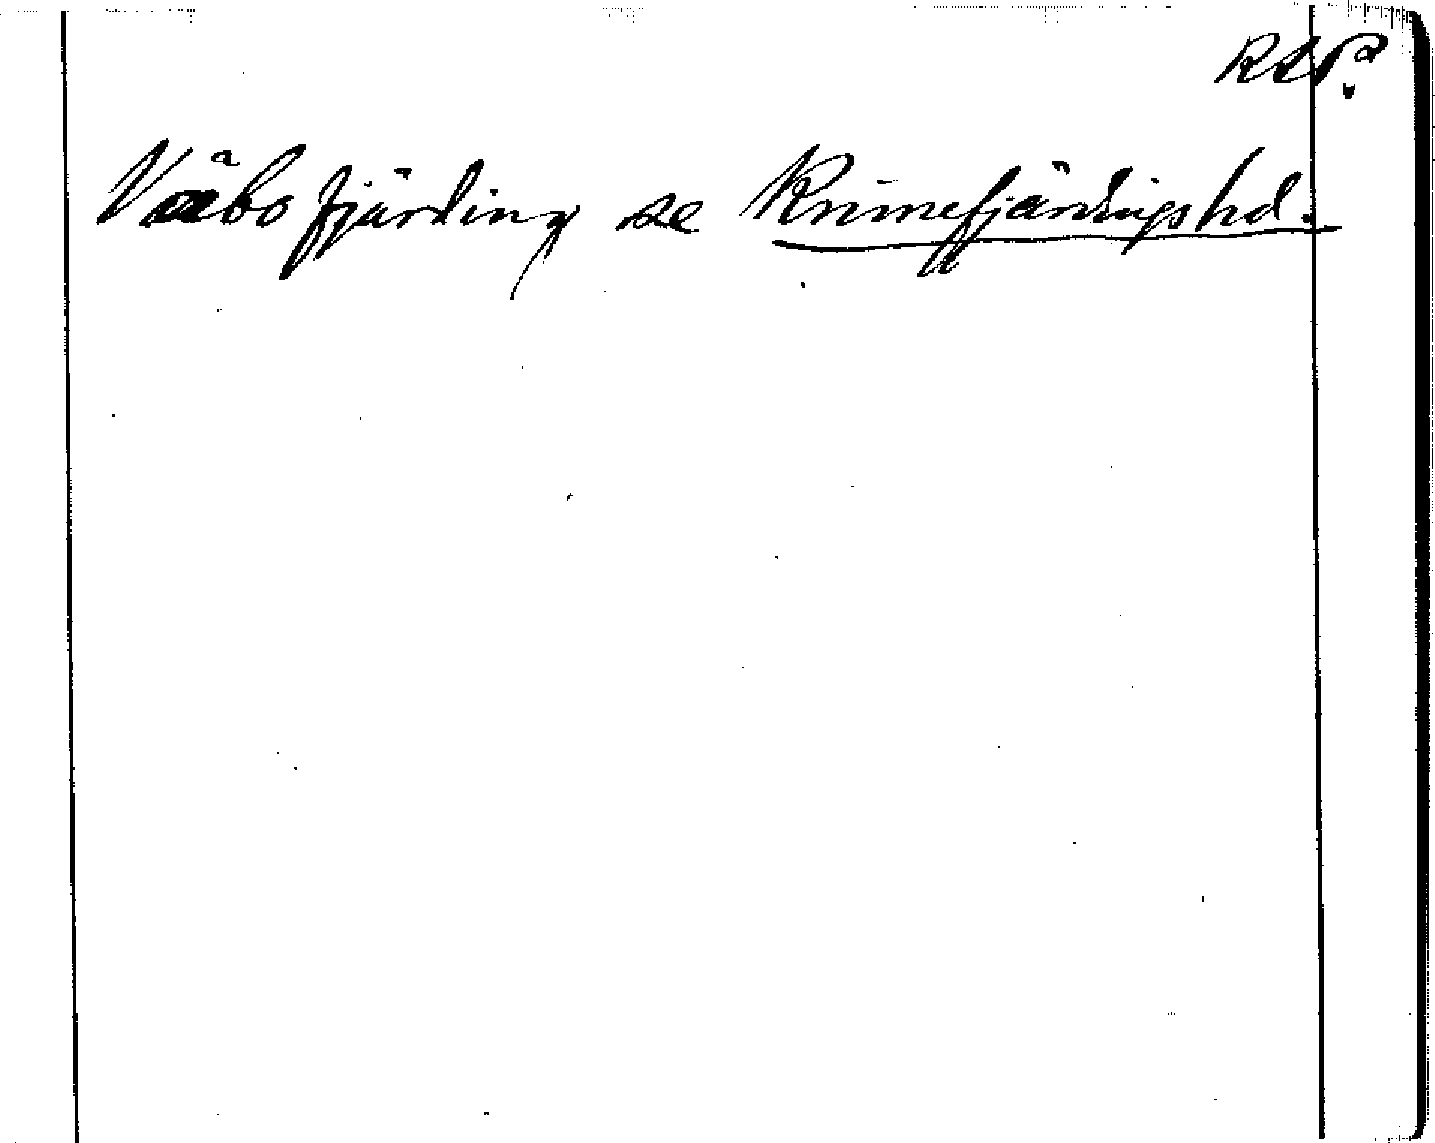 RSP.
Väbo fjärding se Kinnefjärdings hd.